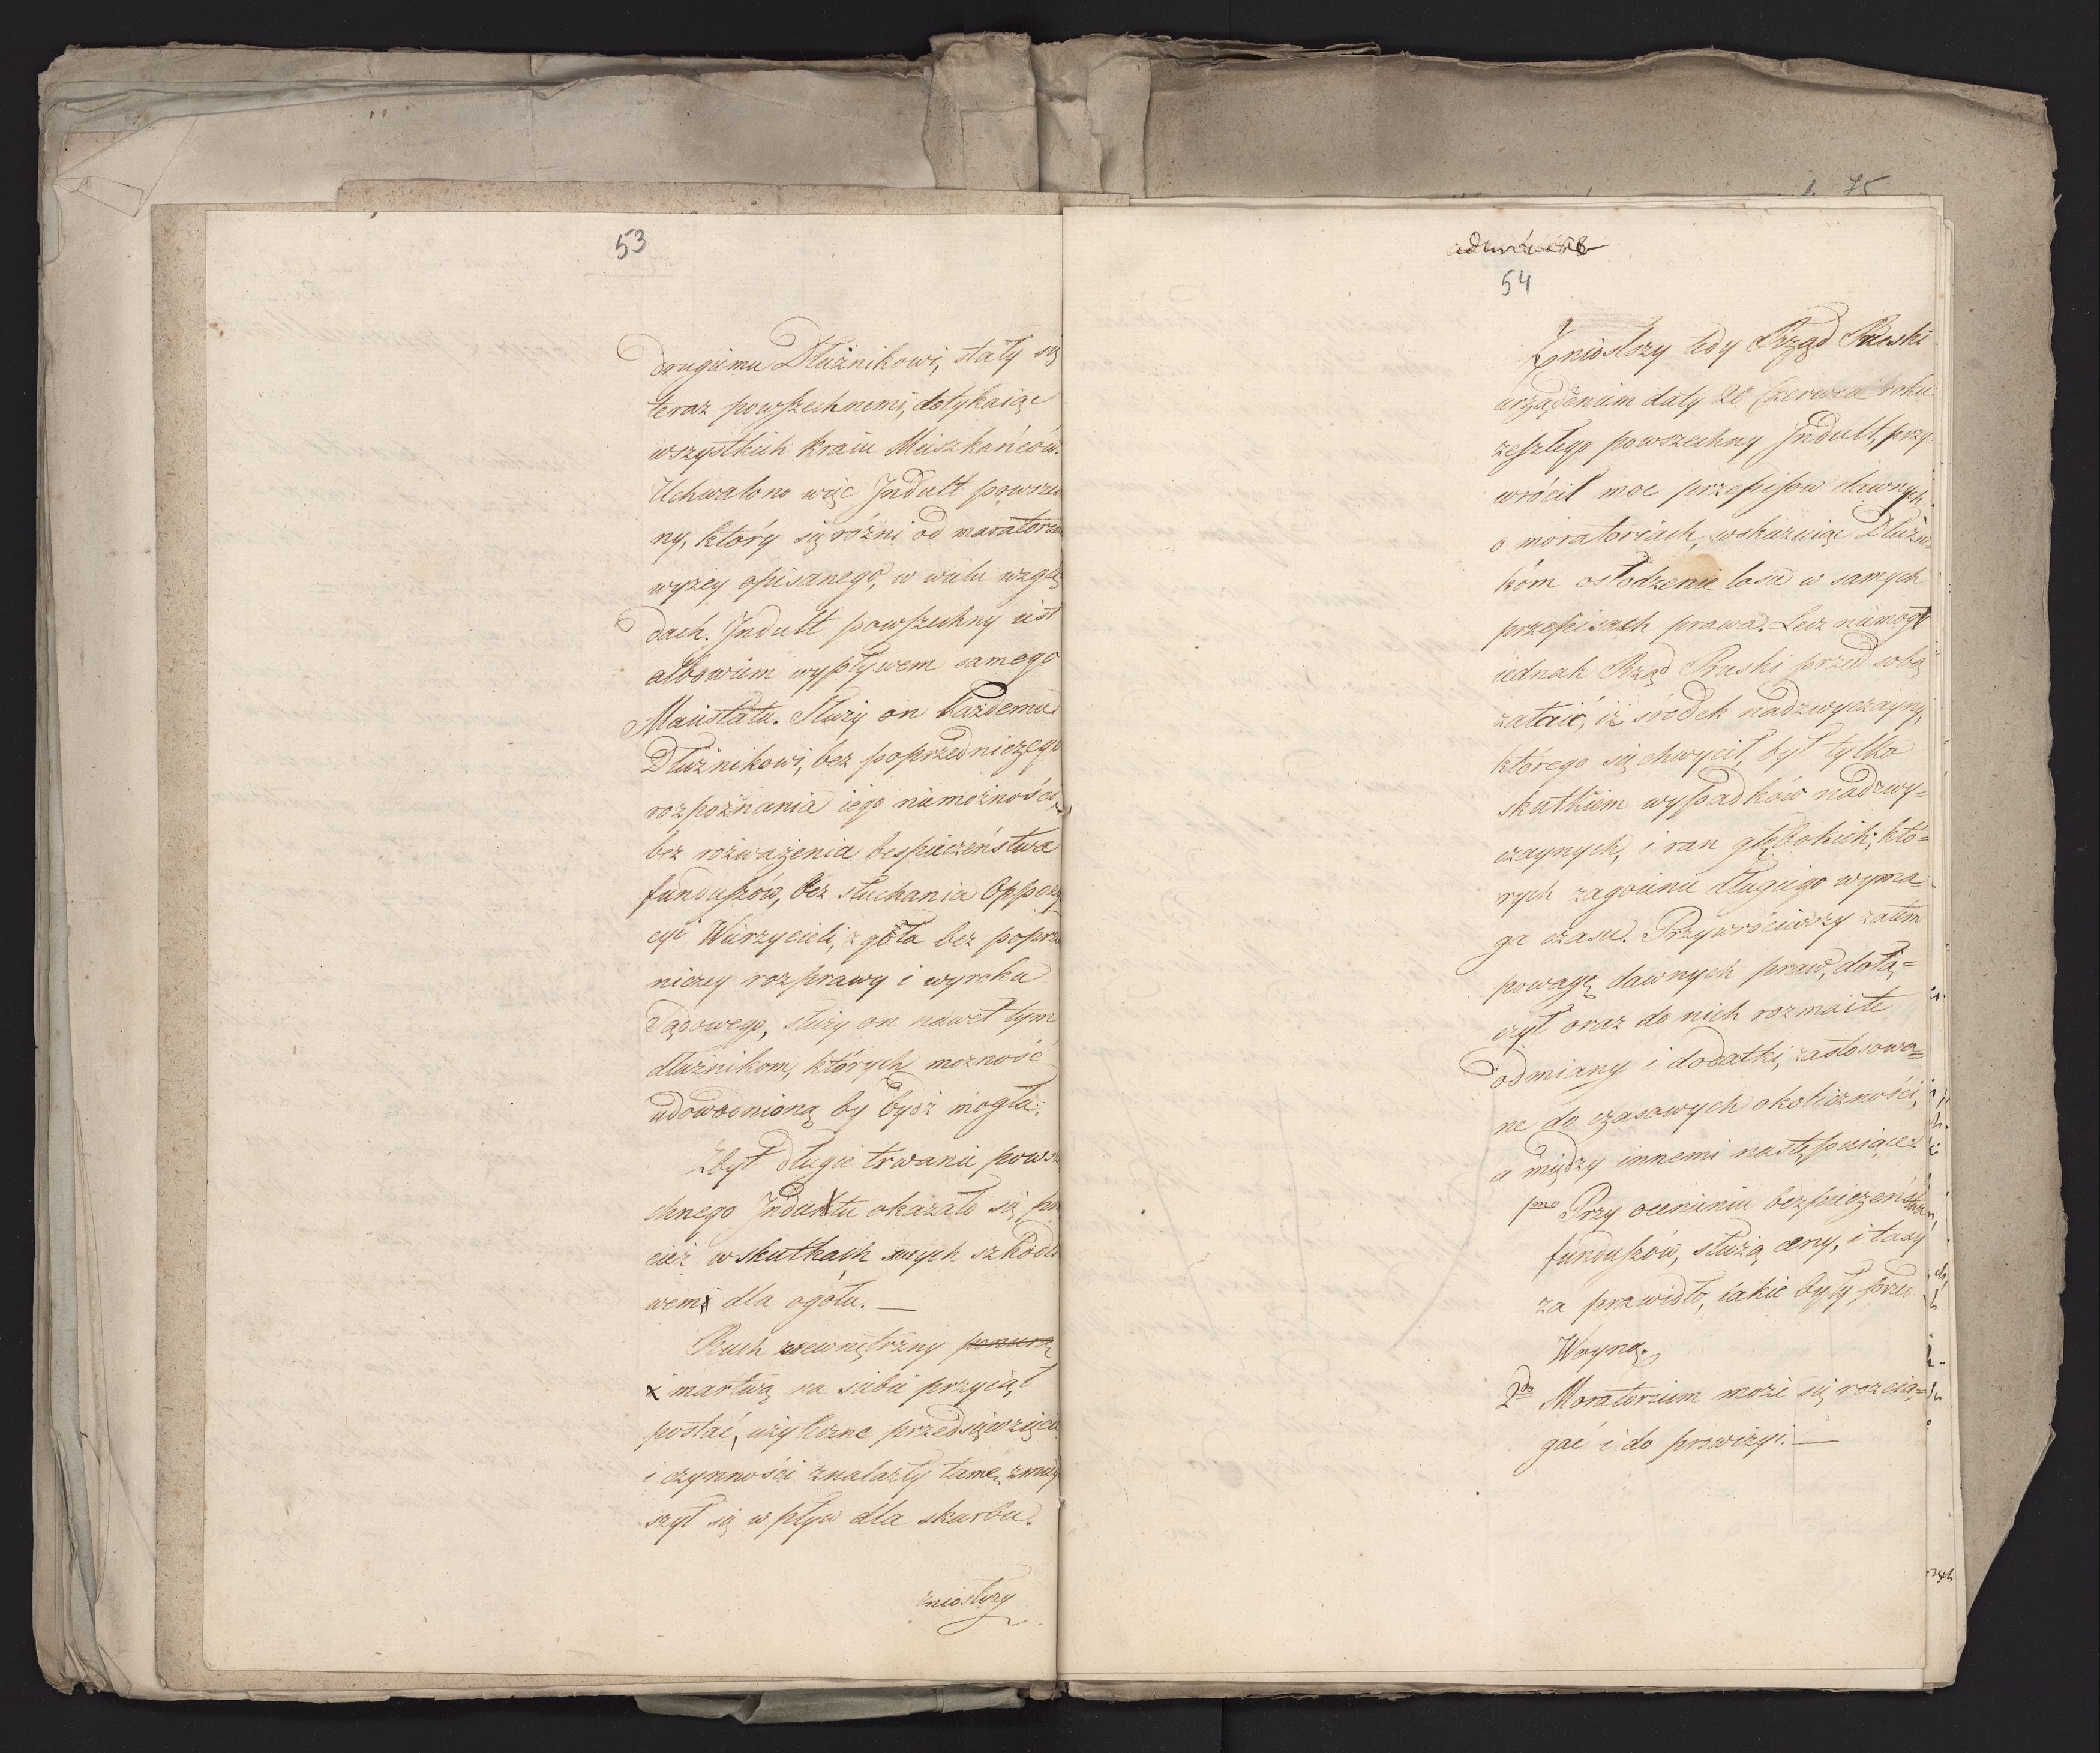 53
drugiemu Dłużnikowi, stały się
teraz powszechnemi, dotykaiąc
wszystkich kraiu Mieszkańców.
Uchwalono więc Indult powszech
ny, który się różni od moratorium
wyżey opisanego, w wielu wzglę
dach. Indult powszechny iest
albowiem wypływem samego
Maiestatu. Służy on każdemu
Dłużnikowi, bez poprzedniczego
rozpoznania iego niemożności,
bez rozważenia bespieczeństwa
funduszów, bez słuchania Oppozy
cyi Wierzycieli, zgoła bez poprzed
niczey rozprawy i wyroku
Sądowego, służy on nawet tym
dłużnikom, których możność
udowodnioną by bydź mogła.
Zbyt długie trwanie powsze
chnego Indultu okazało się prze
cież w skutkach swych szkodli
wem dla ogółu. —
Ruch zewnętrzny
martwą na siebie przyiął
postać, użyteczne przedsięwzięcia
i czynności znalazły tamę, zmniey
szył się wpływ dla skarbu.
zniosłszy
54
Zniosłszy tedy Rząd Pruski
urządzeniem daty 20 Czerwca roku
zeszłego powszechny Indult, przy
wrócił moc przepisow dawnych
o moratoriach, wskazuiąc Dłużni
kóm osłodzenie losu w samych
przepisach prawa. Lecz niemógł
iednak Rząd Pruski przed sobą
zataić, iż środek nadzwyczayny,
którego się chwycił, był tylko
skutkiem wypadków nadzwy=
czaynych, i ran głębokich, któ=
rych zagoienie długiego wyma=
ga czasu. Przywróciwszy zatem
powagę dawnych praw, dołą=
czył oraz do nich rozmaite
odmiany i dodatki, zastosowa=
ne do czasowych okoliczności,
a między innemi następuiące:
1mo Przy ocenieniu bezpieczeństwa
funduszów, służą ceny, i taxy
za prawidło, iakie były przed
Woyną.
2do Moratorium może się rozcią=
gać i do prowizyi. —